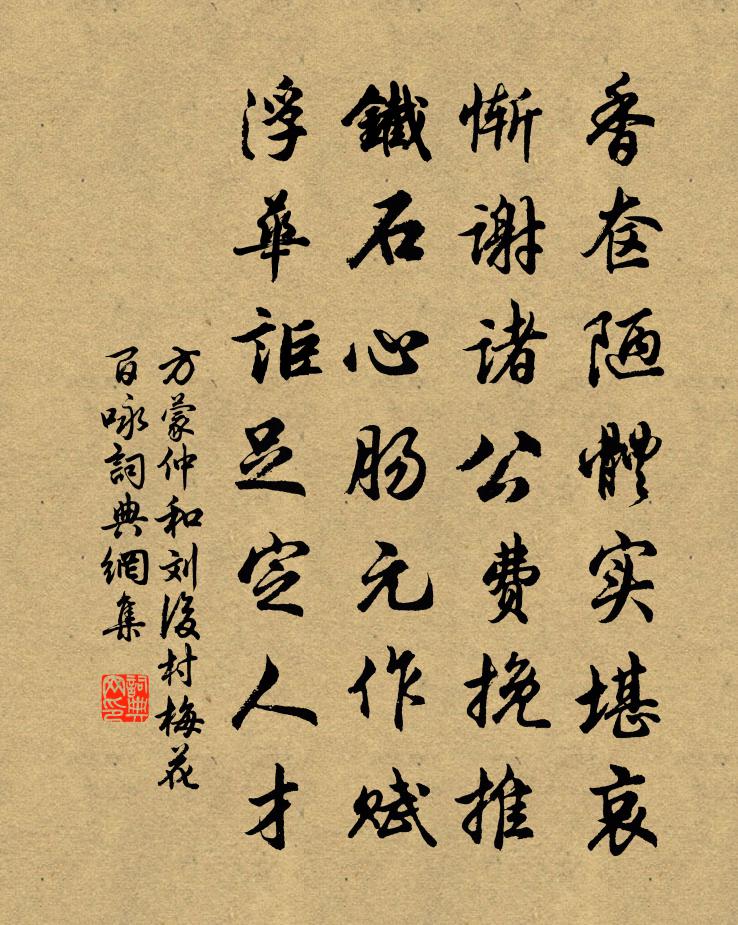 香奁陋體实堪哀
惭谢诸公费挽推
鐵石心肠元作赋
浮華詎足定人才
方蒙仲和刘後村梅花
百咏詞典網集
詞典
网印